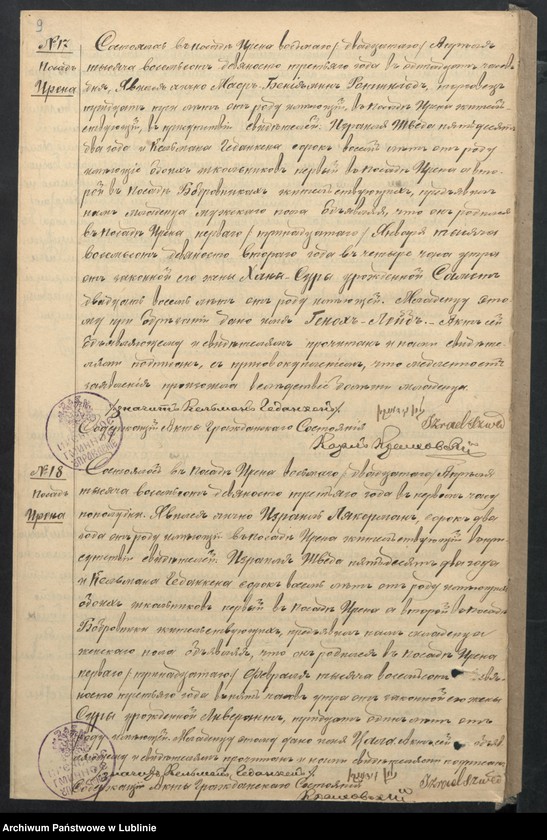 9
№ 17
Посадъ
Ирена
Состоялось въ посадѣ Ирена восьмаго/двадцатаго/Апрѣля
тысяча восемьсотъ девяносто третьяго года въ одинадцать часовъ
дня, Явился лично Маеръ-Беніяминъ торговецъ
тридцать лѣтъ отъ роду имѣющій, въ посадѣ Ирена житель-
ствующій, въ присутствіи свидѣтелей: Израиля Шведа пятьдесятъ
два года и Кельмана Геданкена сорокъ восемь лѣтъ отъ роду
имѣющіе обоихъ школьниковъ первый въ посадѣ Ирена а вто-
рой въ посадѣ Бобровникахъ жительствующихъ, предъявилъ
намъ младенца мужескаго пола объявляя, что онъ родился
въ посадѣ Ирена перваго/тринадцатаго/Января тысяча
восемьсотъ девяносто втораго года въ четыре часа утра
отъ законной его жены Ханы-Суры урожденной
двадцать восемь лѣтъ отъ роду имѣющей. Младенцу это-
му при обрѣзаніи дано имя Генохъ- Актъ сей
объявляющему и свидѣтелямъ прочитанъ и нами свидѣте-
лями подписанъ, съ присовокупленіемъ, что
заявленія произошла вслѣдствіе младенца.
/значитъ Кельманъ Геданкенъ/
Содержащій Акты Гражданскаго Состоянія
Izrael Szwed
№ 18
Посадъ
Ирена
Состоялось въ посадѣ Ирена восьмаго/двадцатаго/Апрѣля
тысяча восемьсотъ девяносто третьяго года въ первомъ часу
пополудни. Явился лично Израиль сорокъ два
года отъ роду имѣющій въ посадѣ Ирена жительствующій въ при-
сутствіи свидѣтелей: Израиля Шведа пятьдесятъ два года
и Кельмана Геданкена сорокъ восемь лѣтъ отъ роду имѣющихъ
обоихъ школьниковъ первый въ посадѣ Ирена а второй въ посадѣ
Бобровники жительствующихъ, предъявилъ намъ младенца
женскаго пола объявляя, что онъ родился въ посадѣ Ирена
перваго/тринадцатаго/Февраля тысяча восемьсотъ девя-
носто третьяго года въ пять часовъ утра отъ законной его жены
Суры урожденной тридцать одинъ лѣтъ отъ
роду имѣющей. Младенцу этому дано имя Актъ сей объяв-
ляющему и свидѣтелямъ прочитанъ и нами свидѣтелями подписанъ.
/значитъ Кельманъ Геданкенъ/
Содержащій Акты Гражданскаго Состоянія
Izrael Szwed
Archiwum Państwowe w Lublinie